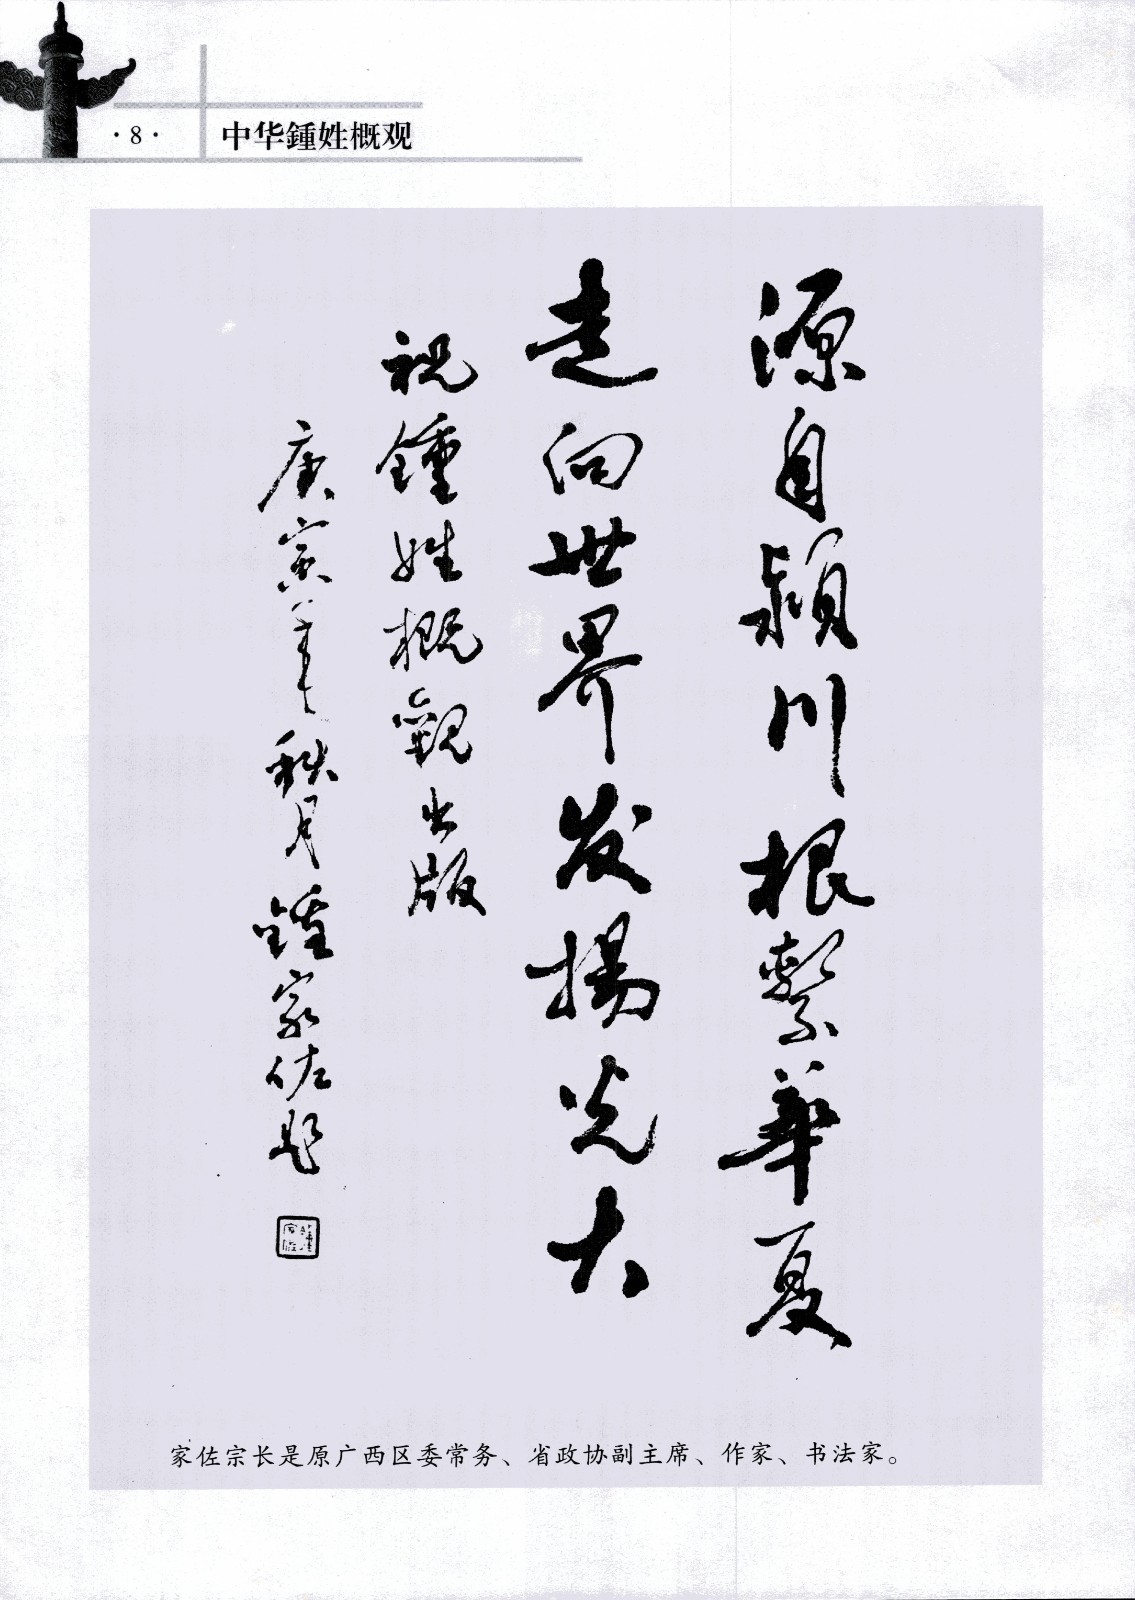 ·8·
中华鍾姓概观
源自颍川根繫華夏
走向世界发揚光大
祝鍾姓概觀出版
庚寅年秋月鍾家佐题
鍾家佐
家佐宗长是原广西区委常务、省政协副主席、作家、书法家。